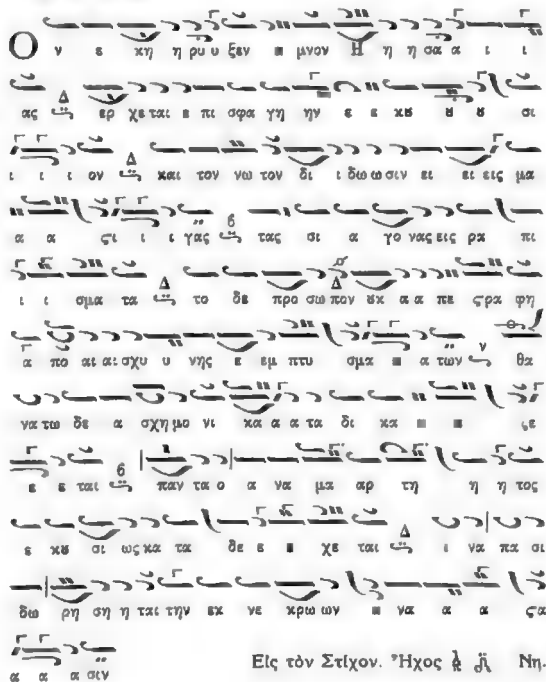 Ο ν ε κη η ρυ υ ξεν α μνον Η η η σα α ι ι
ας Δ ερ χε ται ε πι σφα γη ην ε ε κȣ ȣ ȣ σι
ι ι ι ον Δ και τον νω τον δι ι δω ω σιν ει ει εις μα
α α ϛι ι ι γας ϐ τας σι α γο νας εις ρα πι
ι ι σμα τα Δ το δε προ σω πον Δ ȣκ α α πε ϛρα φη
α πο αι αι σχυ υ νης ε εμ πτυ σμα α α των ν θα
να τω δε α σχη μο νι κα α α τα δι κα α α ζε
ε ε ται ϐ παν τα ο α να μα αρ τη η η τος
ε κȣ σι ως κα τα δε ε ε χε ται Δ ι να πα σι
δω ρη ση η ται την εκ νε κρω ων α να α α ϛα
α α α σιν Εἰς τὸν Στίχον. Ἦχος λ δ Νη.